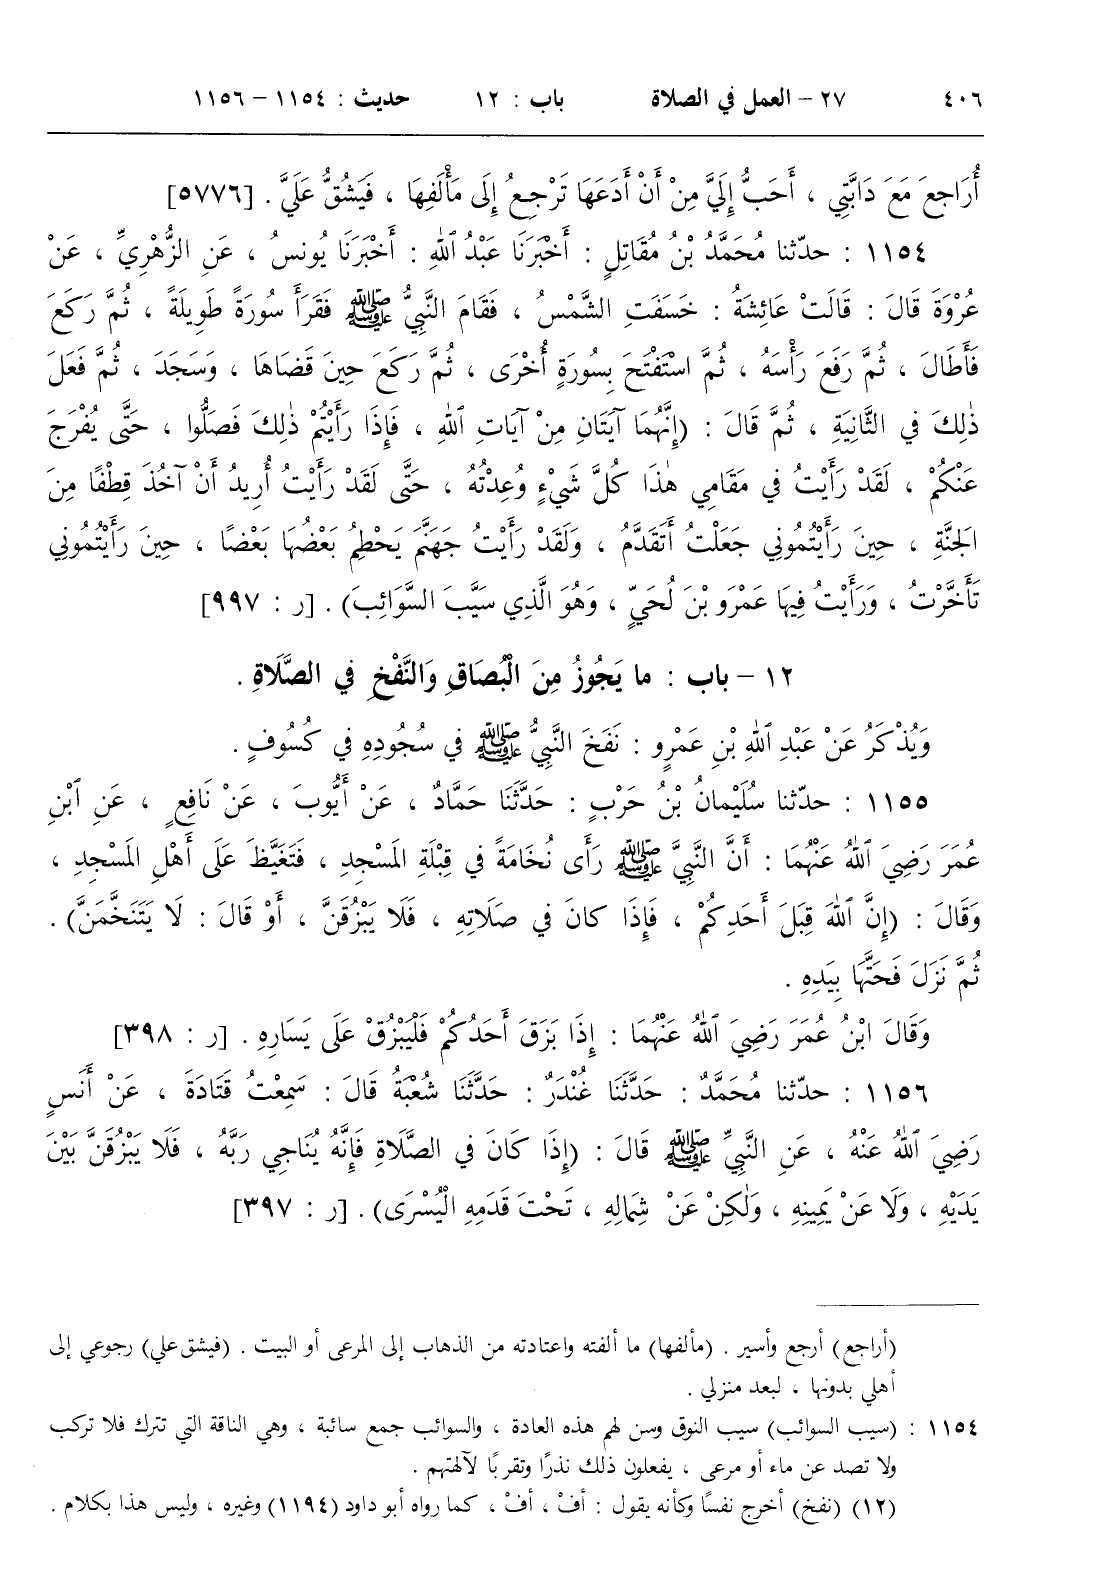 ٤٠٦ ٢٧ – العمل في الصلاة باب : ١٢ حديث : ١١٥٤ – ١١٥٦
أُرَاجِعَ مَعَ دَابَّتِي ، أَحَبُّ إِلَيَّ مِنْ أَنْ أَدَعَهَا تَرْجِعُ إِلَى مَأْلَفِهَا ، فَيَشُقُّ عَلَيَّ . [٥٧٧٦]
١١٥٤ : حدّثنا مُحَمَّدُ بْنُ مُقَاتِلٍ : أَخْبَرَنَا عَبْدُ ٱللهِ : أَخْبَرَنَا يُونسُ ، عَنِ الزُّهْرِيِّ ، عَنْ
عُرْوَةَ قَالَ : قَالَتْ عَائِشَةُ : خَسَفَتِ الشَّمْسُ ، فَقَامَ النَّبِيُّ ﷺ فَقَرَأَ سُورَةً طَوِيلَةً ، ثُمَّ رَكَعَ
فَأَطَالَ ، ثُمَّ رَفَعَ رَأْسَهُ ، ثُمَّ اسْتَفْتَحَ بِسُورَةٍ أُخْرَى ، ثُمَّ رَكَعَ حِينَ قَضَاهَا ، وَسَجَدَ ، ثُمَّ فَعَلَ
ذٰلِكَ في الثَّانِيَةِ ، ثُمَّ قَالَ : (إِنَّهُمَا آيَتَانِ مِنْ آيَاتِ ٱللهِ ، فَإِذَا رَأَيْتُمْ ذٰلِكَ فَصَلُّوا ، حَتَّى يُفْرَجَ
عَنْكُمْ ، لَقَدْ رَأَيْتُ في مَقَامِي هٰذَا كُلَّ شَيْءٍ وُعِدْتُهُ ، حَتَّى لَقَدْ رَأَيْتُ أُرِيدُ أَنْ آخُذَ قِطْفًا مِنَ
الجَنَّةِ ، حِينَ رَأَيْتُمُونِي جَعَلْتُ أَتَقَدَّمُ ، وَلَقَدْ رَأَيْتُ جَهَنَّمَ يَحْطِمُ بَعْضُهَا بَعْضًا ، حِينَ رَأَيْتُمُونِي
تَأَخَّرْتُ ، وَرَأَيْتُ فِيهَا عَمْرَو بْنَ لُحَيٍّ ، وَهُوَ الَّذِي سَيَّبَ السَّوَائِبَ) . [ر : ٩٩٧]
١٢ – باب : ما يَجُوزُ مِنَ الْبُصَاقِ وَالنَّفْخِ في الصَّلَاةِ .
وَيُذْكَرُ عَنْ عَبْدِ ٱللهِ بْنِ عَمْرٍو : نَفَخَ النَّبِيُّ ﷺ في سُجُودِهِ في كُسُوفٍ .
١١٥٥ : حدّثنا سُلَيْمانُ بْنُ حَرْبٍ : حَدَّثَنَا حَمَّادٌ ، عَنْ أَيُّوبَ ، عَنْ نَافِعٍ ، عَنِ ٱبْنِ
عُمَرَ رَضِيَ ٱللهُ عَنْهُمَا : أَنَّ النَّبِيَّ ﷺ رَأَى نُخَامَةً في قِبْلَةِ المَسْجِدِ ، فَتَغَيَّظَ عَلَى أَهْلِ المَسْجِدِ ،
وَقَالَ : (إِنَّ ٱللهَ قِبَلَ أَحَدِكُمْ ، فَإِذَا كانَ في صَلَاتِهِ ، فَلَا يَبْزُقَنَّ ، أَوْ قَالَ : لَا يَتَنَخَّمَنَّ) .
ثُمَّ نَزَلَ فَحَتَّهَا بِيَدِهِ .
وَقَالَ ابْنُ عُمَرَ رَضِيَ ٱللهُ عَنْهُمَا : إِذَا بَزَقَ أَحَدُكُمْ فَلْيَبْزُقْ عَلَى يَسَارِهِ . [ر : ٣٩٨]
١١٥٦ : حدّثنا مُحَمَّدٌ : حَدَّثَنَا غُنْدَرٌ : حَدَّثَنَا شُعْبَةُ قَالَ : سَمِعْتُ قَتَادَةَ ، عَنْ أَنَسٍ
رَضِيَ ٱللهُ عَنْهُ ، عَنِ النَّبِيِّ ﷺ قَالَ : (إِذَا كَانَ في الصَّلَاةِ فَإِنَّهُ يُنَاجِي رَبَّهُ ، فَلَا يَبْزُقَنَّ بَيْنَ
يَدَيْهِ ، وَلَا عَنْ يَمِينِهِ ، وَلٰكِنْ عَنْ شِمَالِهِ ، تَحْتَ قَدَمِهِ الْيُسْرَى) . [ر : ٣٩٧]
(أراجع) أرجع وأسير . (مألفها) ما ألفته واعتادته من الذهاب إلى المرعى أو البيت . (فيشق علي) رجوعي إلى
أهلي بدونها ، لبعد منزلي .
١١٥٤ : (سيب السوائب) سيب النوق وسن لهم هذه العادة ، والسوائب جمع سائبة ، وهي الناقة التي تترك فلا تركب
ولا تصد عن ماء أو مرعى ، يفعلون ذلك نذرًا وتقربًا لآلهتهم .
(١٢) (نفخ) أخرج نفسًا وكأنه يقول : أفْ ، أفْ ، كما رواه أبو داود (١١٩٤) وغيره ، وليس هذا بكلام .